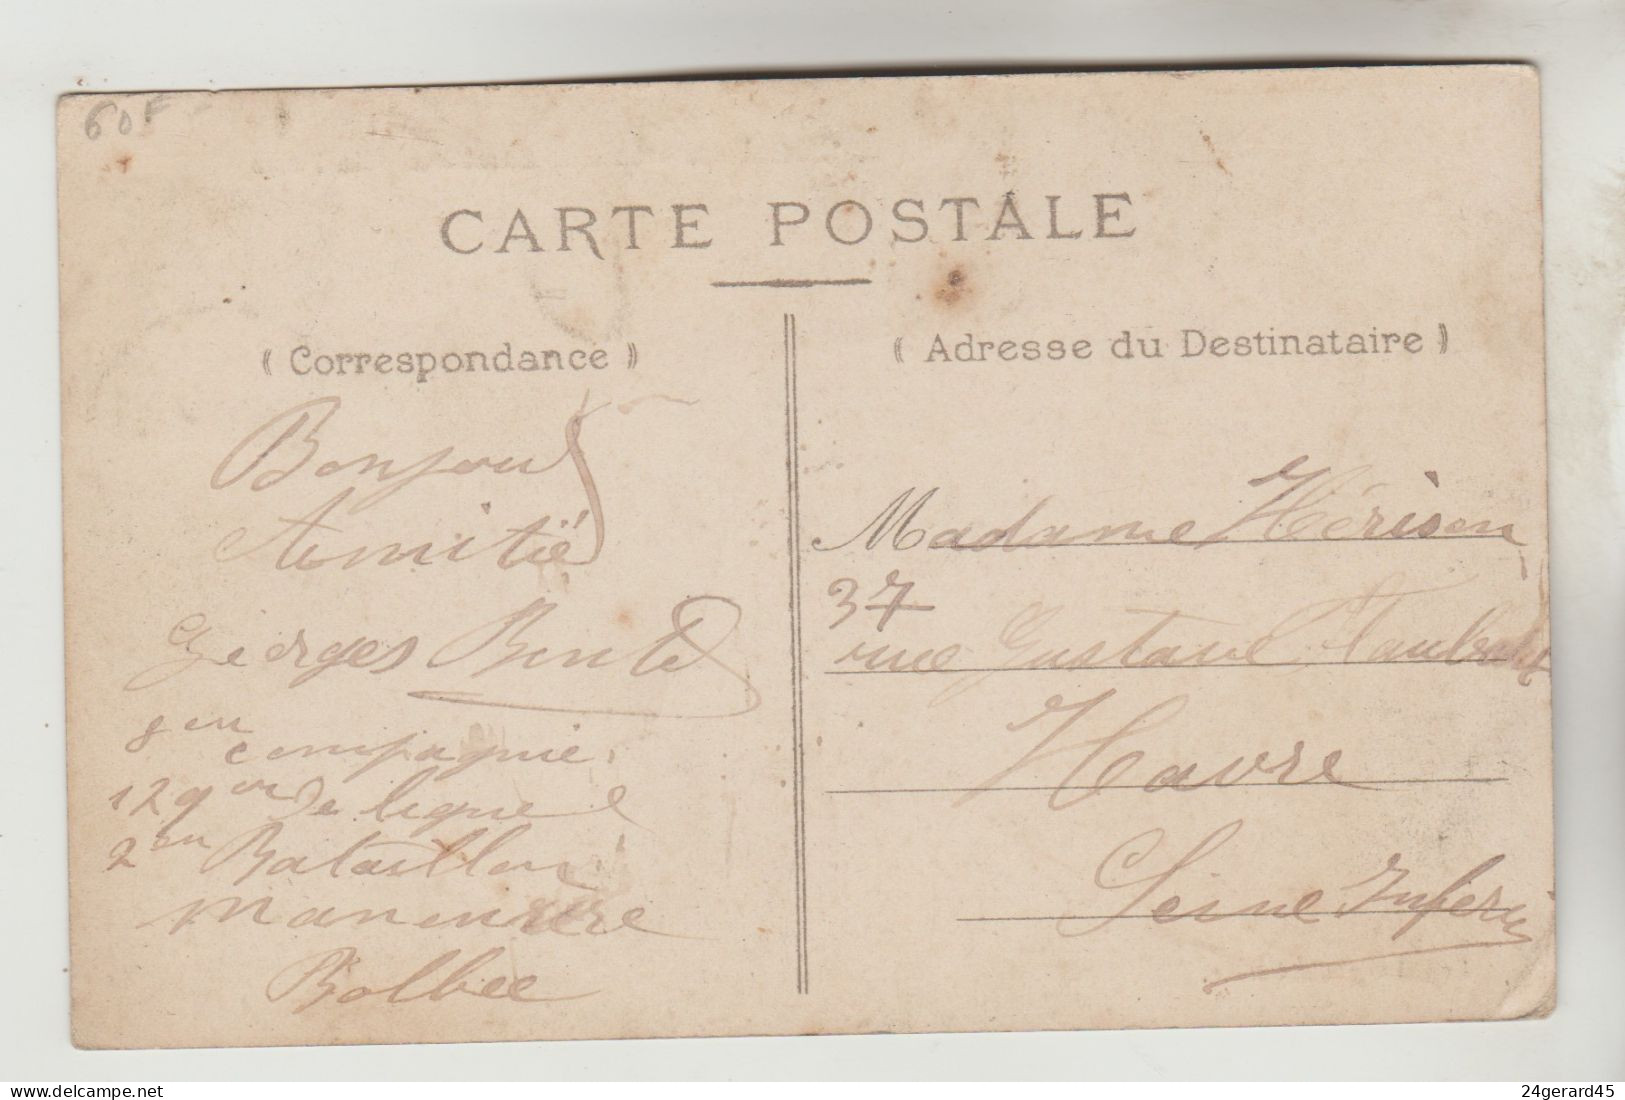 60F
CARTE POSTALE
( Correspondance )
Bonjour
Amitié
Georges
8em
compagnie
129em de ligne
2em Bataillon
manenvere
Bolbec
( Adresse du Destinataire )
Madame Hérison
37
rue Gustave Flaubert
Havre
Seine Inferie
24gerard45